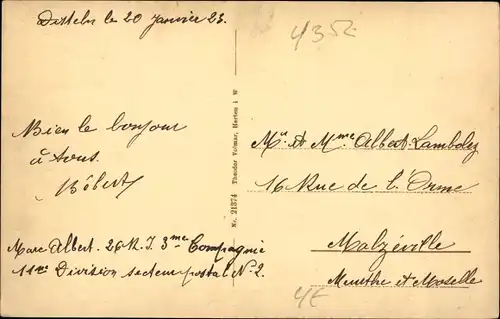 le 20 Janvier 23.
4352
Bien le bonjour
à tous.
Bébert
Marc Albert. 26 R.I 3me Compagnie
11me Division secteur postal No 2.
Nr. 21374 Theodor Volmar, Herten i W
Mr et Mme Albert-Lamboley
16 Rue de l'Orme
Malzéville
Meurthe et Moselle
4E